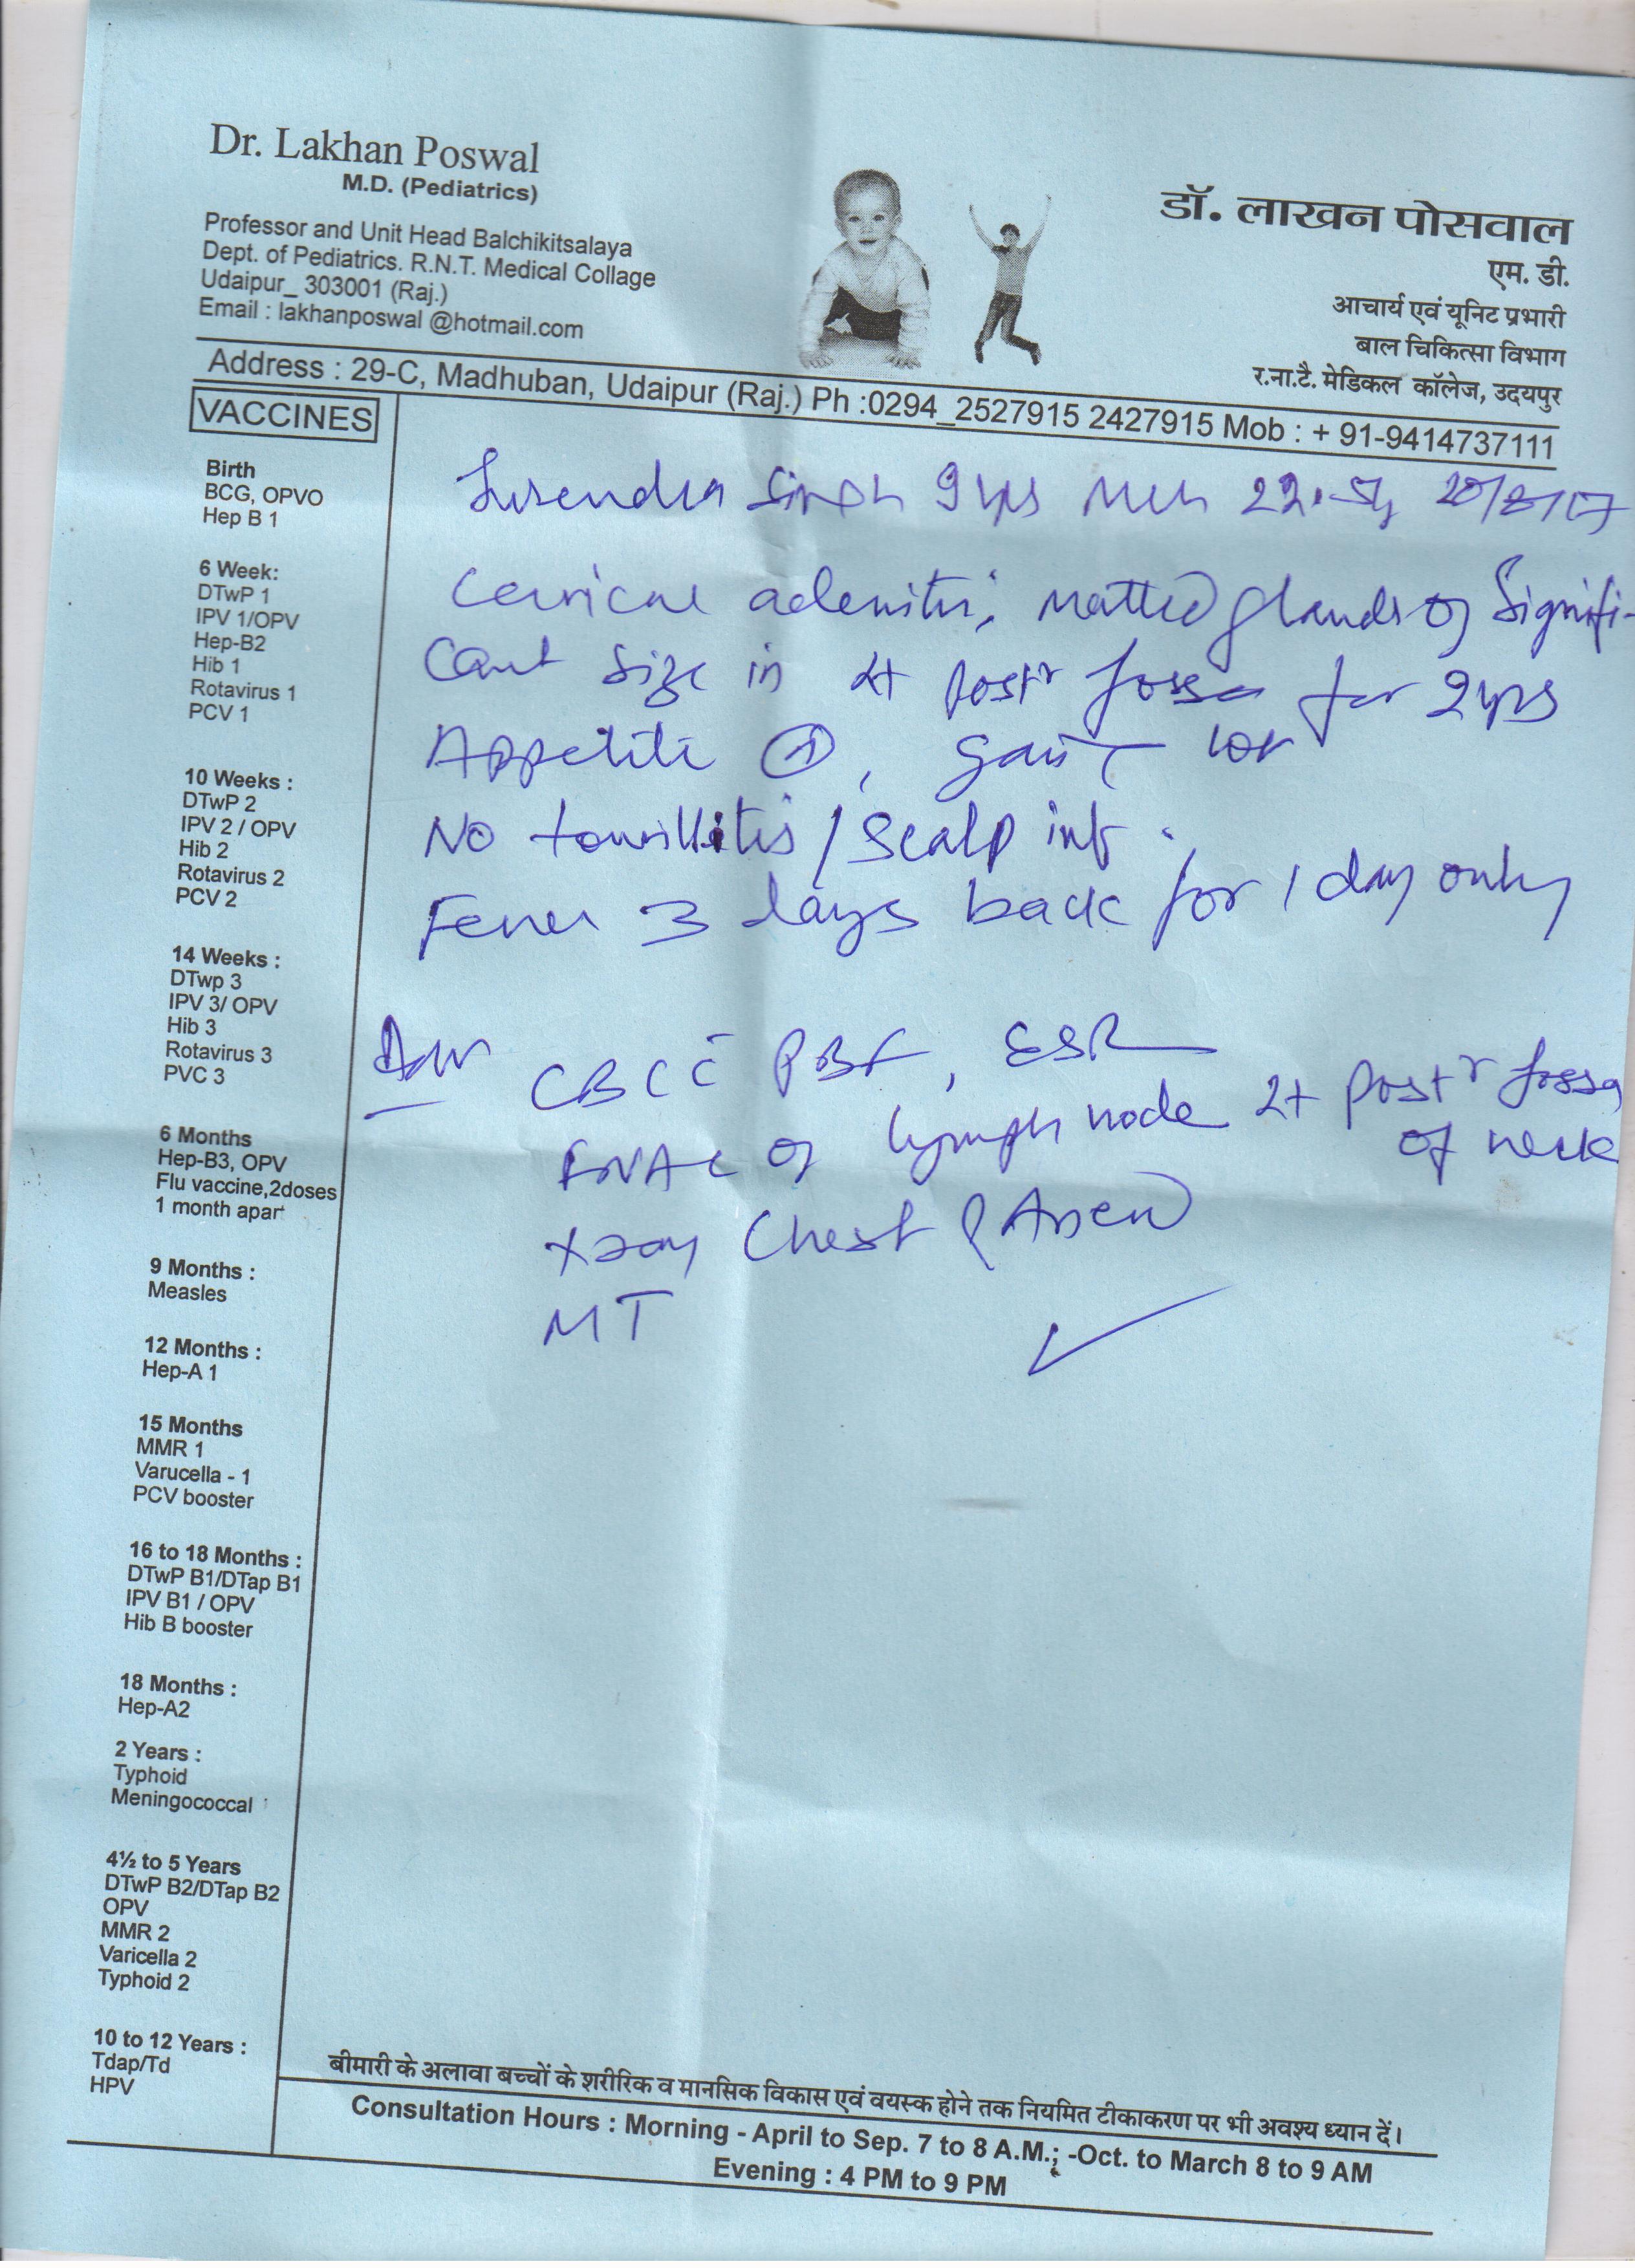 Dr. Lakhan Poswal
M.D. (Pediatrics)
Professor and Unit Head Balchikitsalaya
Dept. of Pediatrics. R.N.T. Medical Collage
Udaipur_ 303001 (Raj.)
Email : lakhanposwal @hotmail.com
डॉ. लाखन पोसवाल
एम. डी.
आचार्य एवं यूनिट प्रभारी
बाल चिकित्सा विभाग
र.ना.टै. मेडिकल कॉलेज, उदयपुर
Address : 29-C, Madhuban, Udaipur (Raj.) Ph :0294_2527915 2427915 Mob : + 91-9414737111
VACCINES
Birth
BCG, OPVO
Hep B 1
6 Week:
DTwP 1
IPV 1/OPV
Hep-B2
Hib 1
Rotavirus 1
PCV 1
10 Weeks :
DTwP 2
IPV 2 / OPV
Hib 2
Rotavirus 2
PCV 2
14 Weeks :
DTwp 3
IPV 3/ OPV
Hib 3
Rotavirus 3
PVC 3
6 Months
Hep-B3, OPV
Flu vaccine,2doses
1 month apart
9 Months :
Measles
12 Months :
Hep-A 1
15 Months
MMR 1
Varucella - 1
PCV booster
16 to 18 Months :
DTwP B1/DTap B1
IPV B1 / OPV
Hib B booster
18 Months :
Hep-A2
2 Years :
Typhoid
Meningococcal
4½ to 5 Years
DTwP B2/DTap B2
OPV
MMR 2
Varicella 2
Typhoid 2
10 to 12 Years :
Tdap/Td
HPV
Surendra Singh 9 yrs
Cervical adenitis, Matted glands of Signifi-
cant size in post^r fossa for 2 yrs
Appetite, gain
No tonsillitis / Scalp inf.
Fever 3 days back for 1 day only
Adv CBC c̄ PBF, ESR
FNAC of lymph node post^r fossa
of neck
Xray Chest PA view
MT
बीमारी के अलावा बच्चों के शरीरिक व मानसिक विकास एवं वयस्क होने तक नियमित टीकाकरण पर भी अवश्य ध्यान दें।
Consultation Hours : Morning - April to Sep. 7 to 8 A.M.; -Oct. to March 8 to 9 AM
Evening : 4 PM to 9 PM